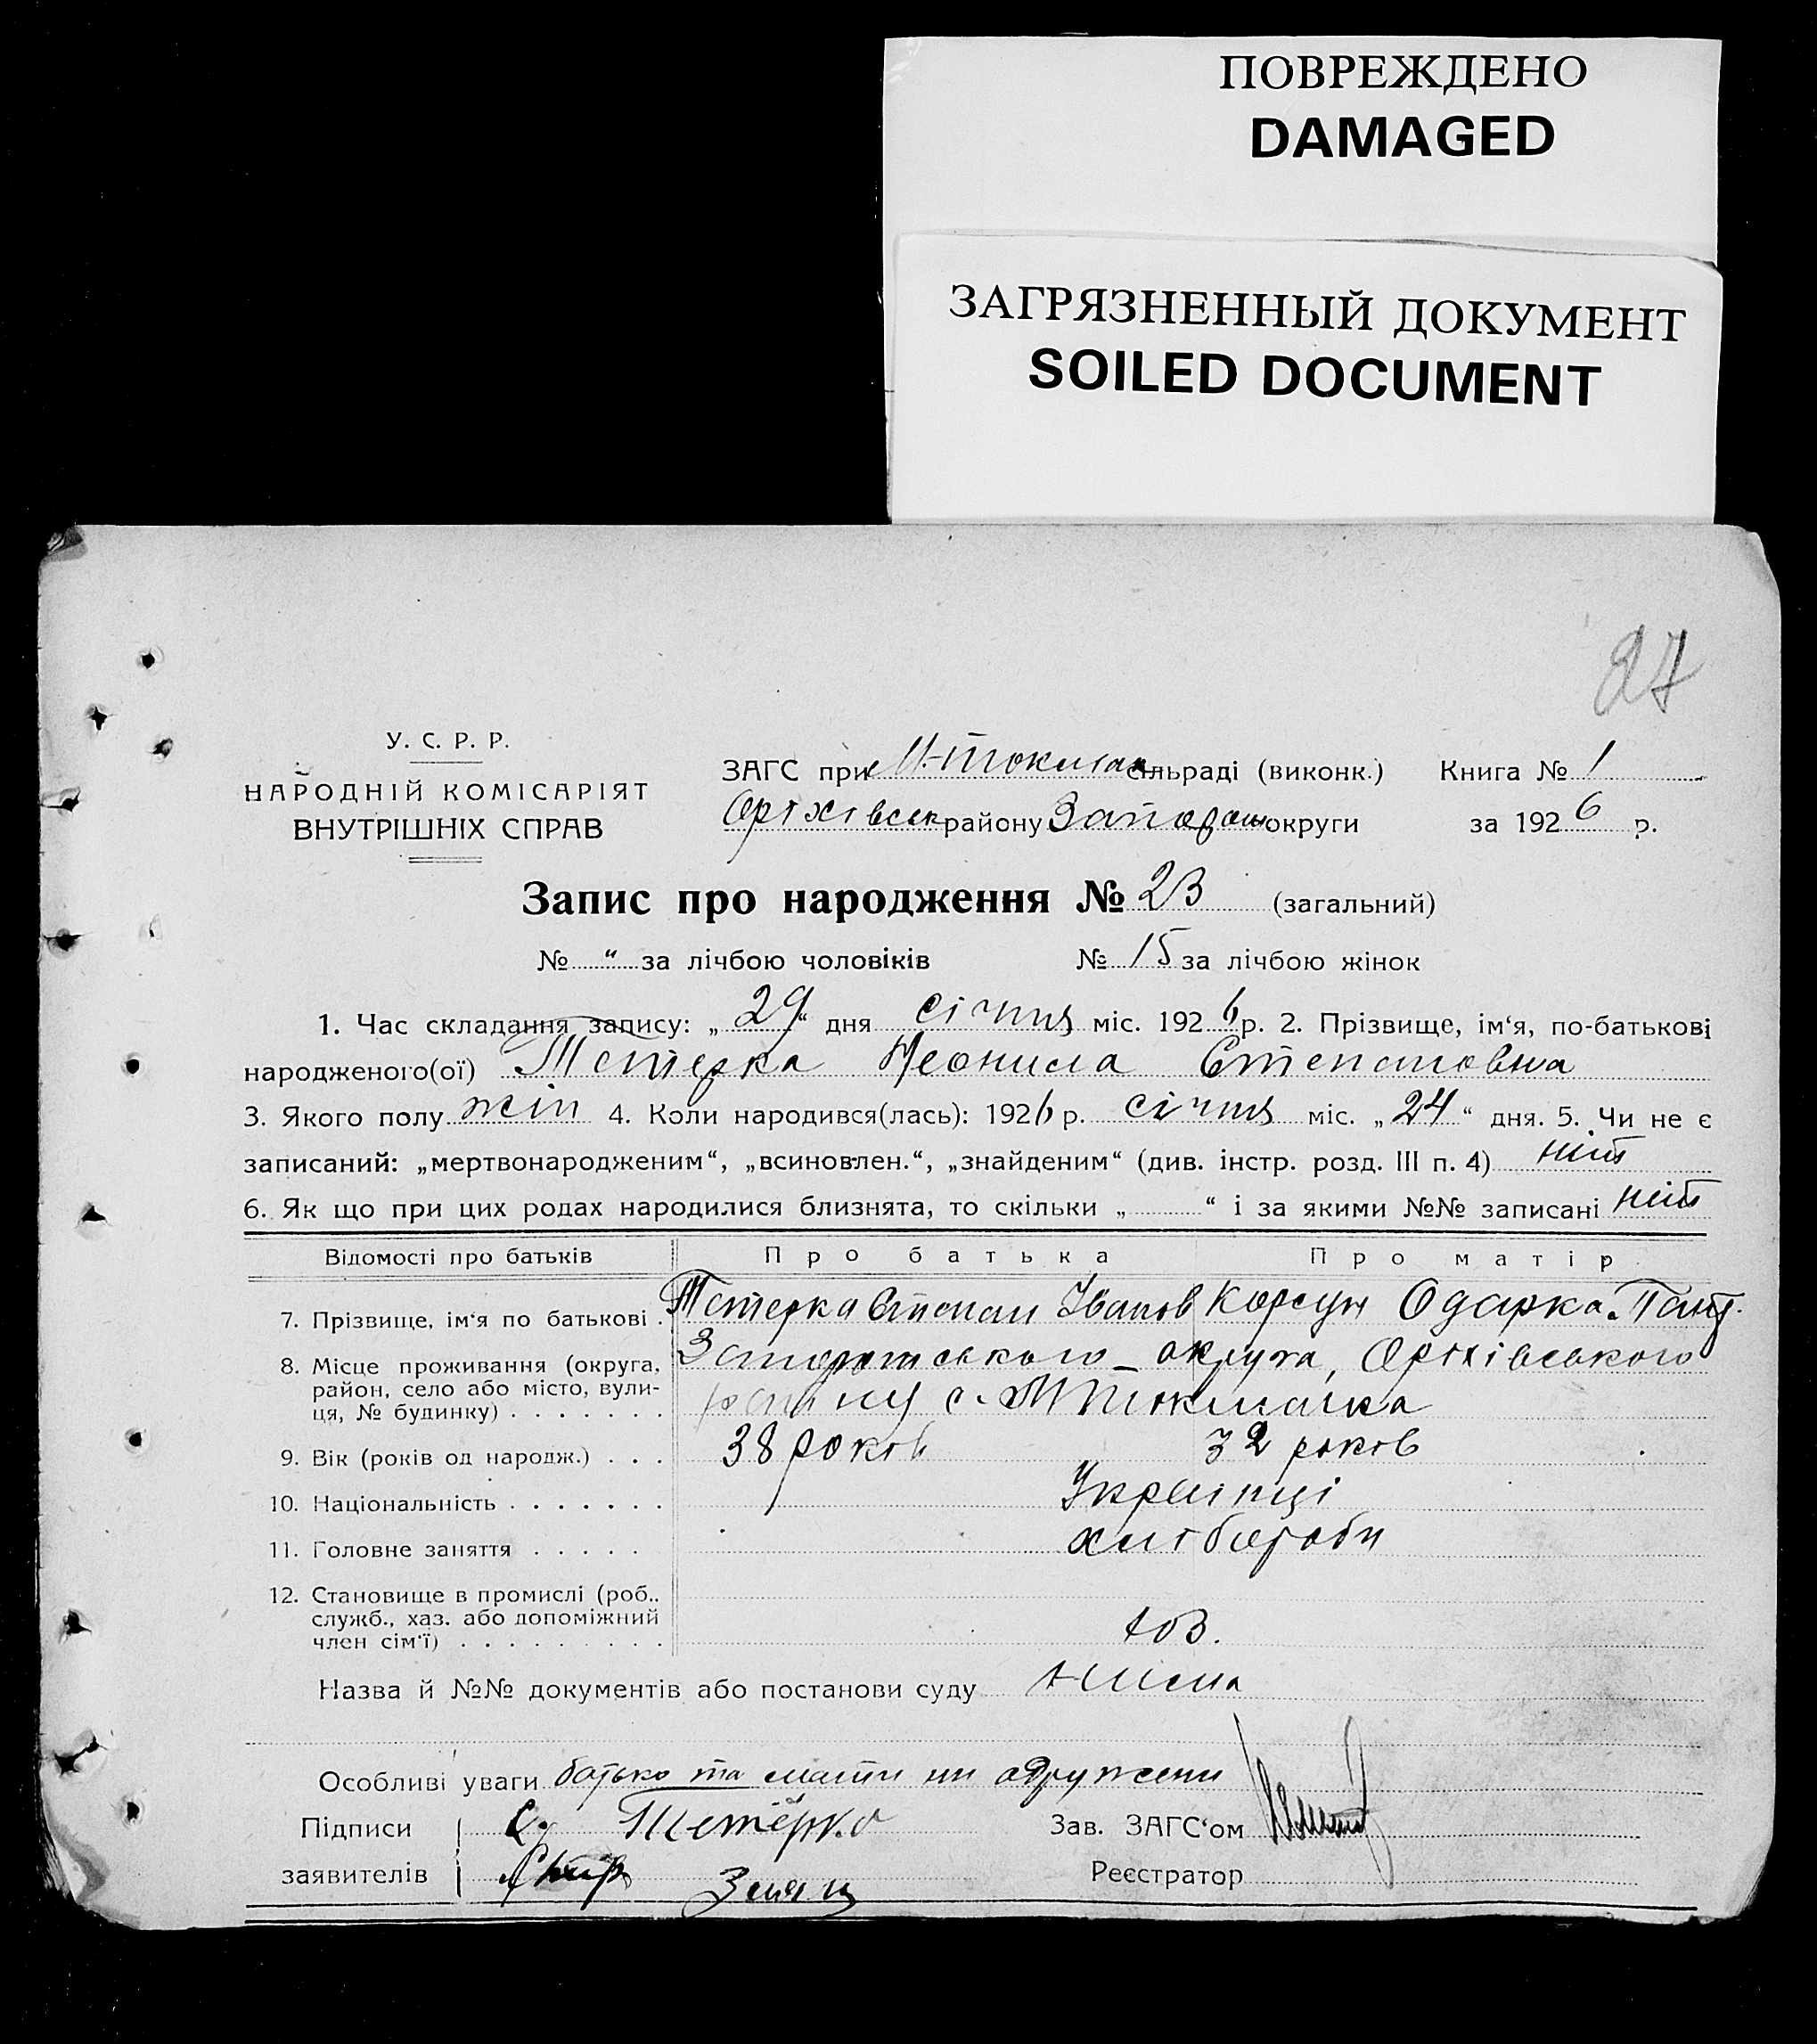 ПОВРЕЖДЕНО
DAMAGED
ЗАГРЯЗНЕННЫЙ ДОКУМЕНТ
SOILED DOCUMENT
27
У. С. Р. Р.
НАРОДНІЙ КОМІСАРІЯТ
ВНУТРІШНІХ СПРАВ
ЗАГС при М-Токмач сільраді (виконк.) Книга № 1
Оріхівськ району Запоріш округи за 1926 р.
Запис про народження № 23 (загальний)
№ " за лічбою чоловіків № 15 за лічбою жінок
1. Час складання запису: „29“ дня січня міс. 1926 р. 2. Прізвище, ім‘я, по-батькові
народженого(ої) Тетерка Неонила Степановна
3. Якого полу жін 4. Коли народився(лась): 1926 р. січня міс. „24“ дня. 5. Чи не є
записаний: „мертвонародженим“, „всиновлен.“, „знайденим“ (див. інстр. розд. III п. 4) ніт
6. Як що при цих родах народилися близнята, то скільки „ “ і за якими №№ записані ніт
Відомості про батьків Про батька Про матір
7. Прізвище, ім‘я по батькові . Тетерка Степан Іванов Корсун Одарка Пант.
8. Місце проживання (округа, район, село або місто, вулиця, № будинку) . . . . . . . Запорізського округа, Оріхівського
району с. М Токмачка
9. Вік (років од народж.) . . . 38 років 32 років
10. Національність . . . . . . . Українці
11. Головне заняття . . . . . хліборобы
12. Становище в промислі (роб.. служб., хаз. або допоміжний член сім‘ї) . . . . . . . . .
Назва й №№ документів або постанови суду Нима
Особливі уваги батько та мати ни одружени
Підписи С. Тетёрко Зав. ЗАГС‘ом
заявителів Реєстратор